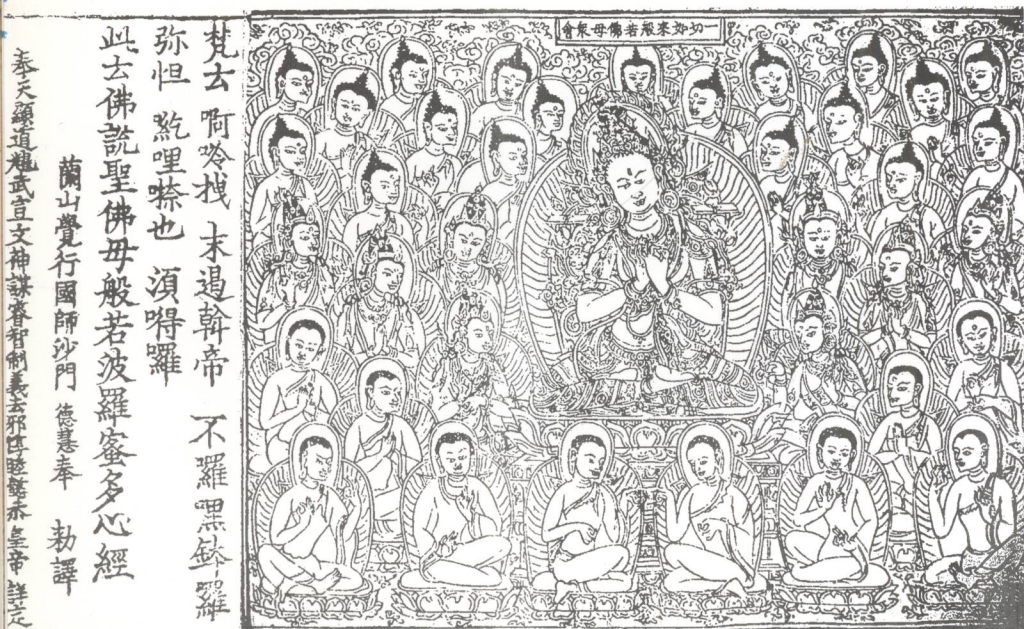 一切如來般若佛母眾會
梵云 啊呤拽 末遏斡帝 不羅嘿鉢羅
弥怛 紇哩捺也 須嘚囉
此云佛說聖佛母般若波羅蜜多心經
蘭山覺行國師沙門 德慧奉 勅譯
奉天顯道耀武宣文神謀睿智制義去邪惇睦懿恭 皇帝 詳定